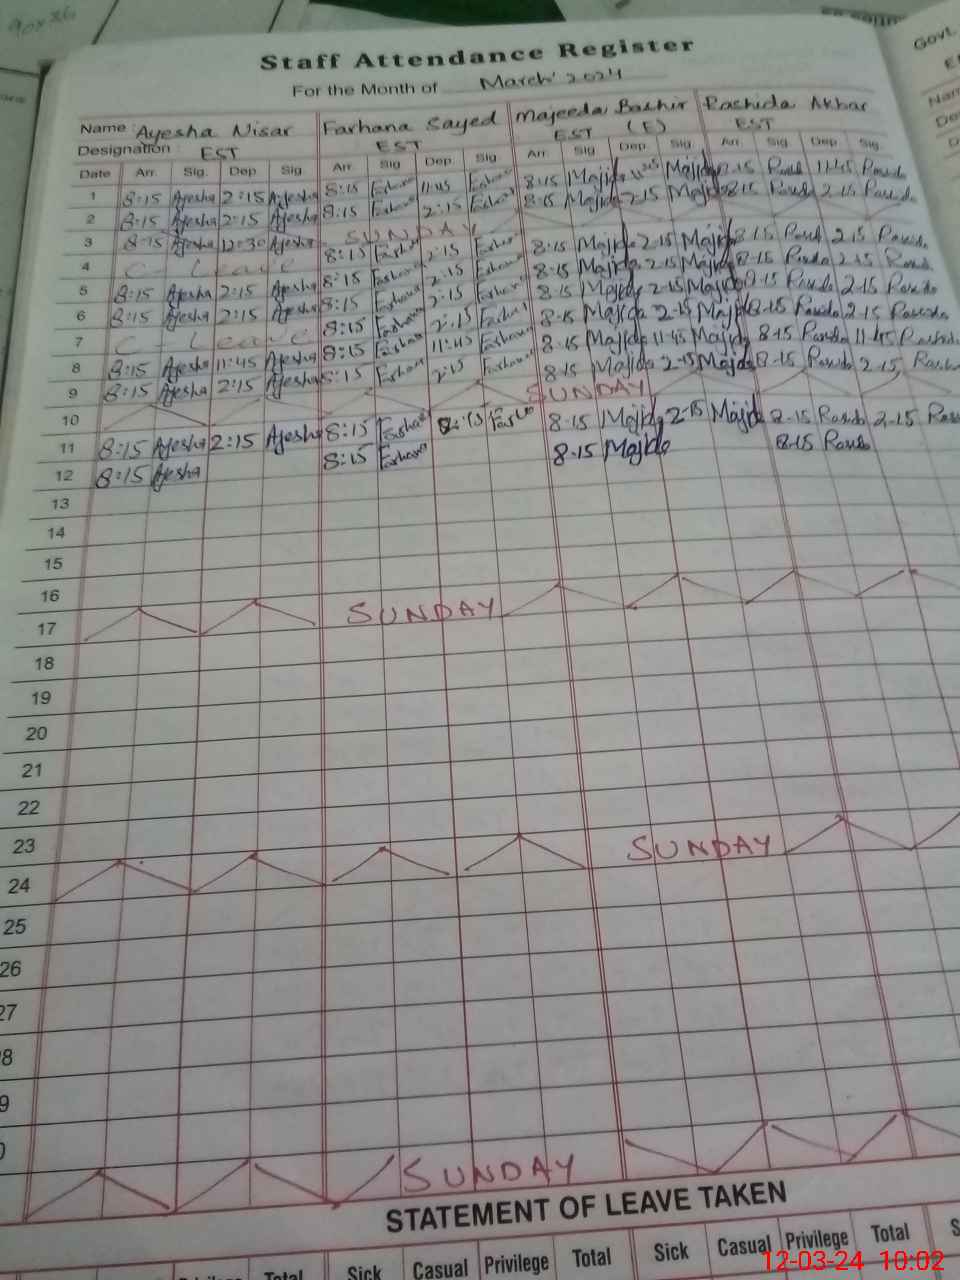 Staff Attendance Register
For the Month of March' 2024
Name : Ayesha Nisar Farhana Sayed Majeeda Bashir Rashida Akhar
Designation : EST EST EST (E) EST
Date Arr. Sig. Dep Sig. Arr. Sig Dep Sig. Arr. Sig Dep. Sig. Arr. Sig Dep Sig.
1 8:15 Ayesha 2:15 Ayesha 8:15 Farhana 11:45 Farhana 8-15 Majida Majida 8-15 11-45
2 8:15 Ayesha 2:15 Ayesha 8:15 Farhana 2:15 Farhana 8-15 Majida 2-15 Majida 8-15 2-15
3 8:15 Ayesha 12:30 Ayesha SUNDAY
4 C - Leave 8:15 Farhana 2:15 Farhana 8-15 Majida 2-15 Majida 8-15 2-15
5 8:15 Ayesha 2:15 Ayesha 8:15 Farhana 2:15 Farhana 8-15 Majida 2-15 Majida 8-15 2-15
6 8:15 Ayesha 2:15 Ayesha 8:15 Farhana 2:15 Farhana 8-15 Majida 2-15 Majida 8-15 2-15
7 C - Leave 8:15 Farhana 2:15 Farhana 8-15 Majida 2-15 Majida 8-15 2-15
8 8:15 Ayesha 11:45 Ayesha 8:15 Farhana 11:45 Farhana 8-15 Majida 11-45 Majida 8-15 11-45
9 8:15 Ayesha 2:15 Ayesha 8:15 Farhana 2:15 Farhana 8-15 Majida 2-15 Majida 8-15 2-15
10 SUNDAY
11 8:15 Ayesha 2:15 Ayesha 8:15 Farhana 2:15 Farhana 8-15 Majida 2-15 Majida 8-15 2-15
12 8:15 Ayesha 8:15 Farhana 8-15 Majida 8-15
13
14
15
16
17 SUNDAY
18
19
20
21
22
23
24 SUNDAY
25
26
27
8
9
0
SUNDAY
STATEMENT OF LEAVE TAKEN
Total Sick Casual Privilege Total Sick Casual Privilege Total
12-03-24 10:02